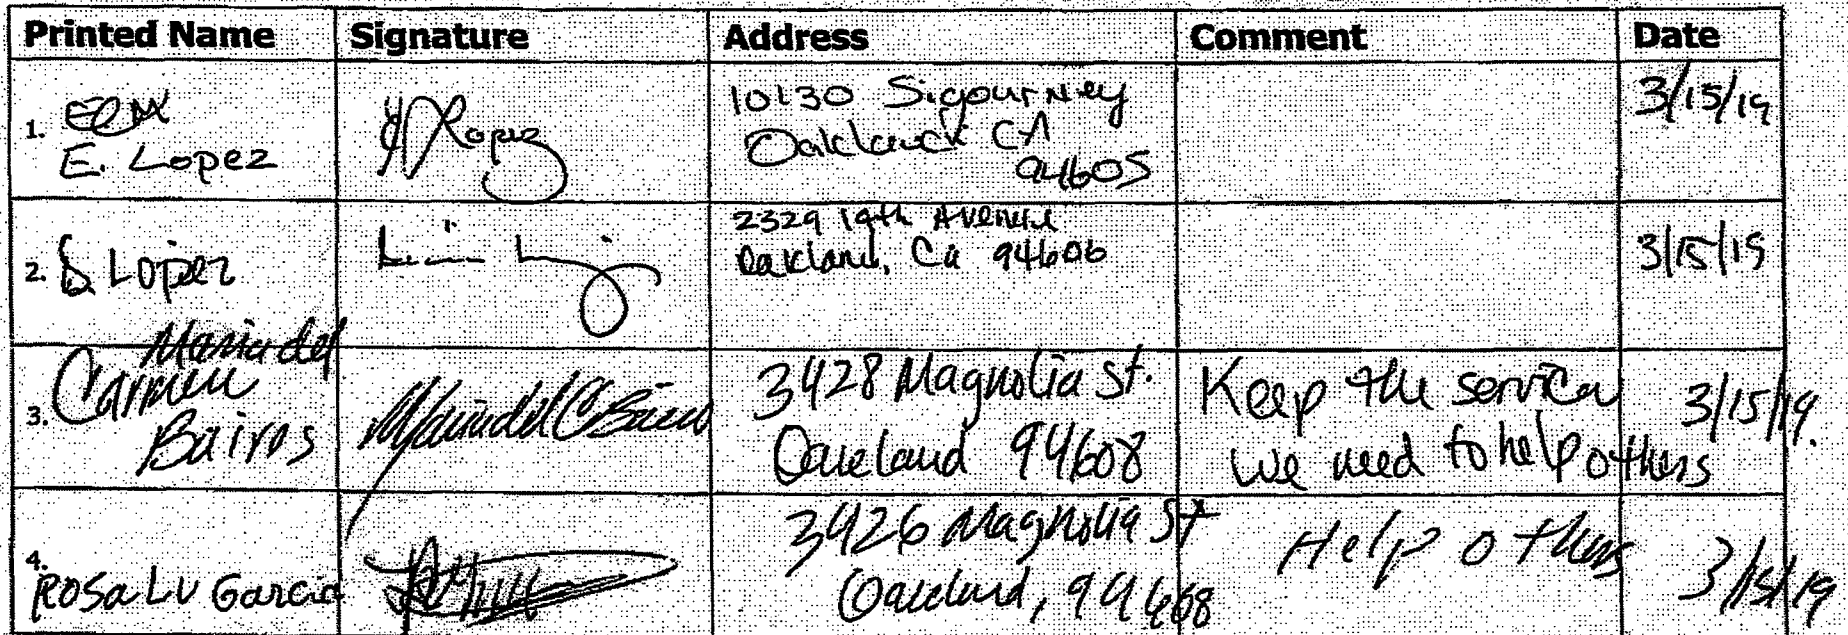 Printed Name Signature Address Comment Date
1. E. Lopez
Lopez
10130 Sigourney
Oakland CA
94605
3/15/19
2. S. Lopez
2329 19th Avenue
Oakland, Ca 94606
3/15/19
3. Maria del
Carmen
Bairos
3428 Magnolia St.
Oakland 94608
Keep the service
we need to help others
3/15/19.
4.
Rosa Lu Garcia
3426 Magnolia St
Oakland, 94608
Help others
3/15/19